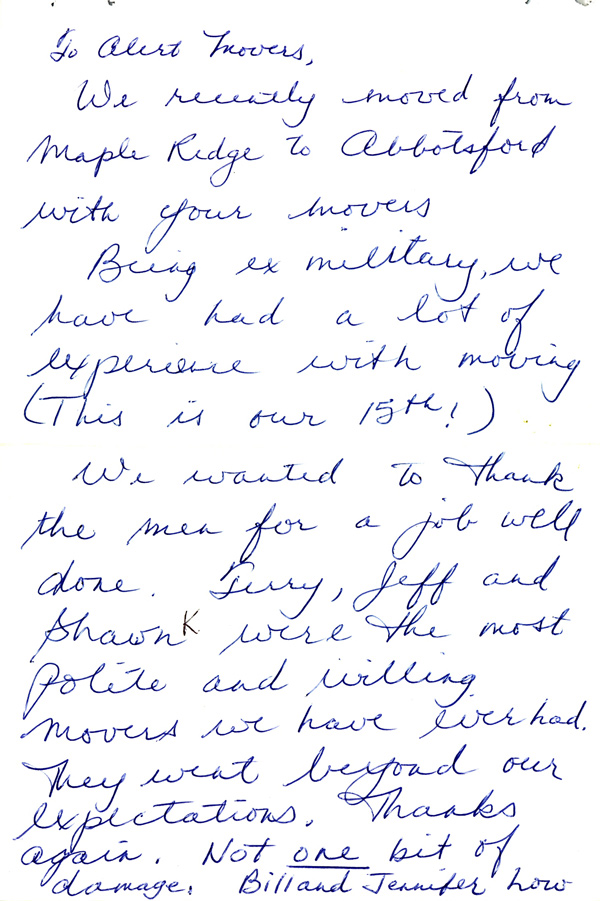 To Alert Movers,
We recently moved from
Maple Ridge to Abbotsford
with your movers
Being ex military, we
have had a lot of
experience with moving
(This is our 15th!)
We wanted to thank
the men for a job well
done. Terry, Jeff and
Shawn K were the most
polite and willing
movers we have ever had.
They went beyond our
expectations. Thanks
again. Not one bit of
damage. Bill and Jennifer Low